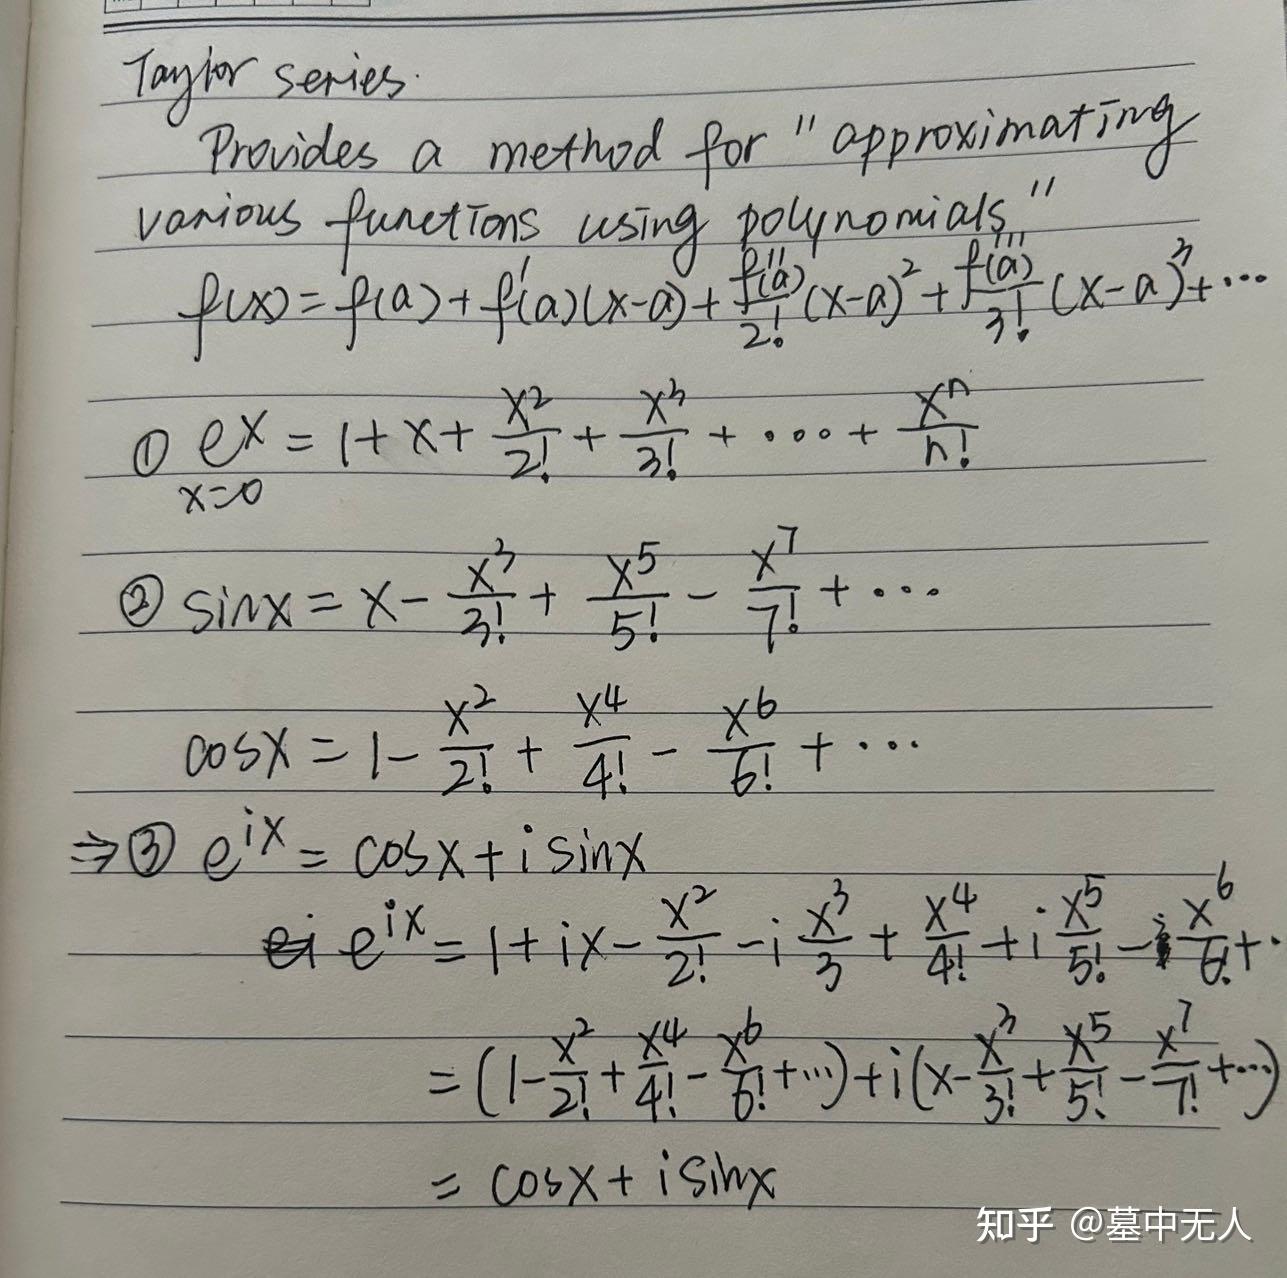 Taylor series.
Provides a method for "approximating
various functions using polynomials"
f(x) = f(a) + f'(a)(x-a) + f''(a)/2! (x-a)² + f'''(a)/3! (x-a)³ + ...
① eˣ = 1 + x + x²/2! + x³/3! + ... + xⁿ/n!
x=0
② sinx = x - x³/3! + x⁵/5! - x⁷/7! + ...
cosx = 1 - x²/2! + x⁴/4! - x⁶/6! + ...
⇒③ eⁱˣ = cosx + i sinx
eⁱˣ = 1 + ix - x²/2! - i x³/3 + x⁴/4! + i x⁵/5! - x⁶/6! + .
= (1 - x²/2! + x⁴/4! - x⁶/6! + ...) + i(x - x³/3! + x⁵/5! - x⁷/7! + ...)
= cosx + i sinx
知乎 @墓中无人